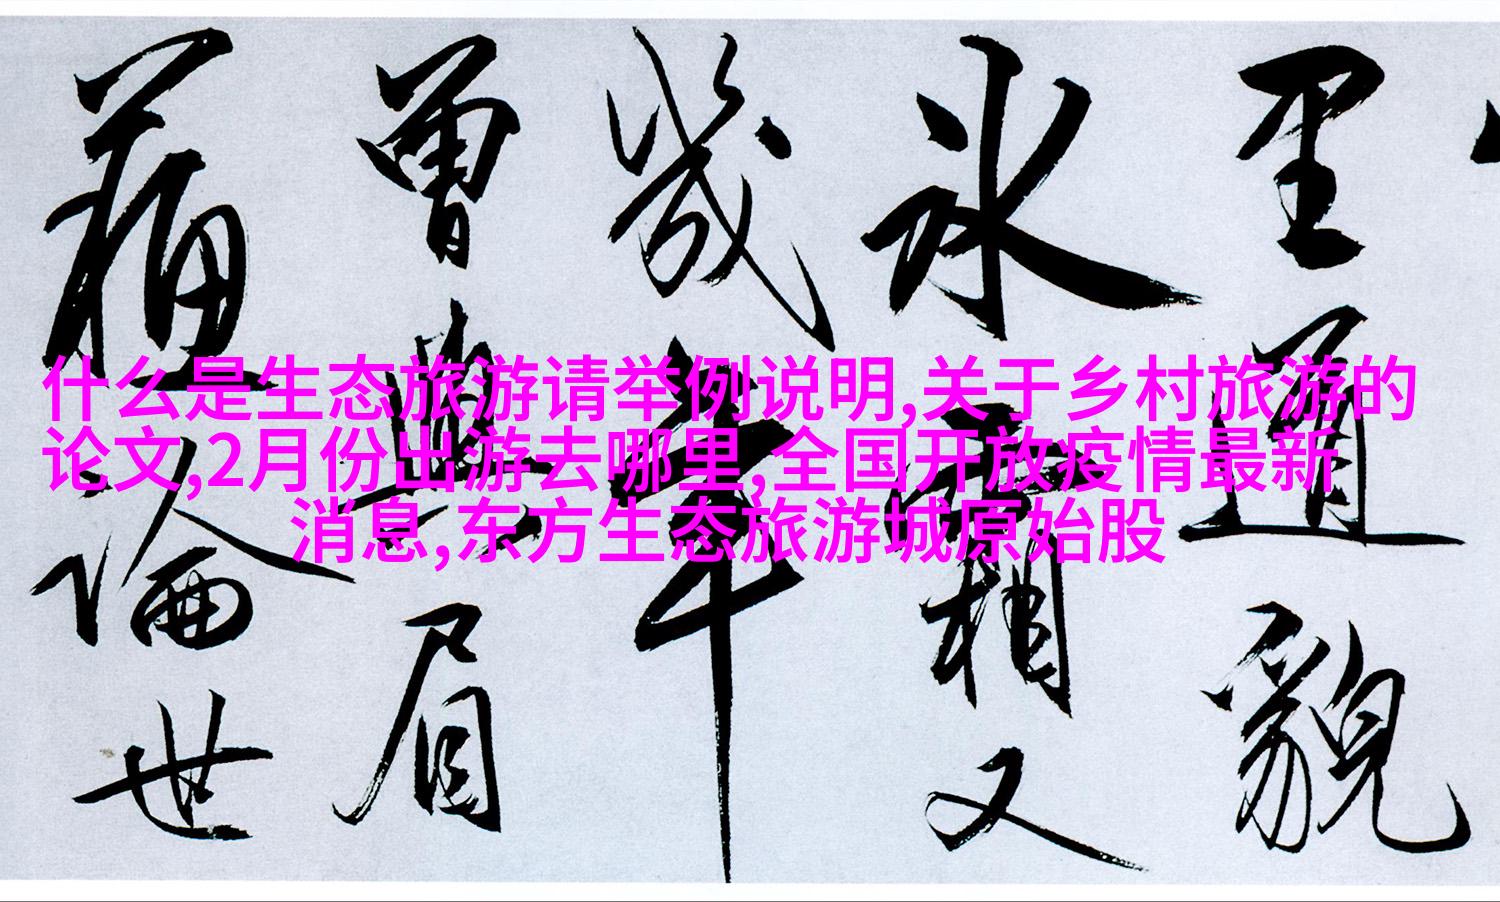 什么是生态旅游请举例说明,关于乡村旅游的
论文,2月份出游去哪里,全国开放疫情最新
消息,东方生态旅游城原始股
里通貌
氷霜又
幾年
曾與眉
論世